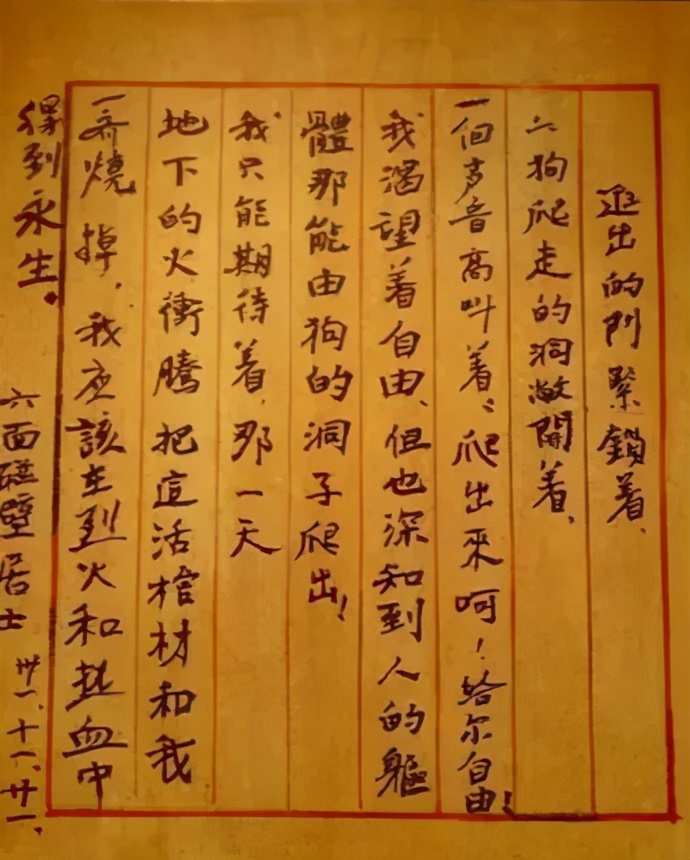 進出的門緊鎖着、
狗爬走的洞敞開着、
一個声音高叫着：爬出來呵！給尔自由！
我渴望着自由、但也深知到人的軀
體那能由狗的洞子爬出！
我只能期待着，那一天
地下的火衝騰把這活棺材和我
一齊燒掉，我应該在烈火和熱血中
得到永生。
六面碰壁居士
卅一、十一、廿一、